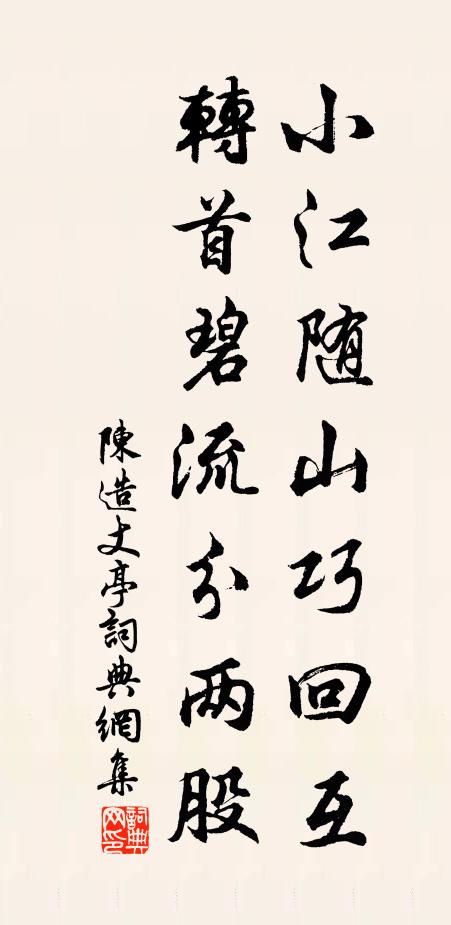 小江随山巧回互
轉首碧流分两股
陳造丈亭詞典網集
詞典网印